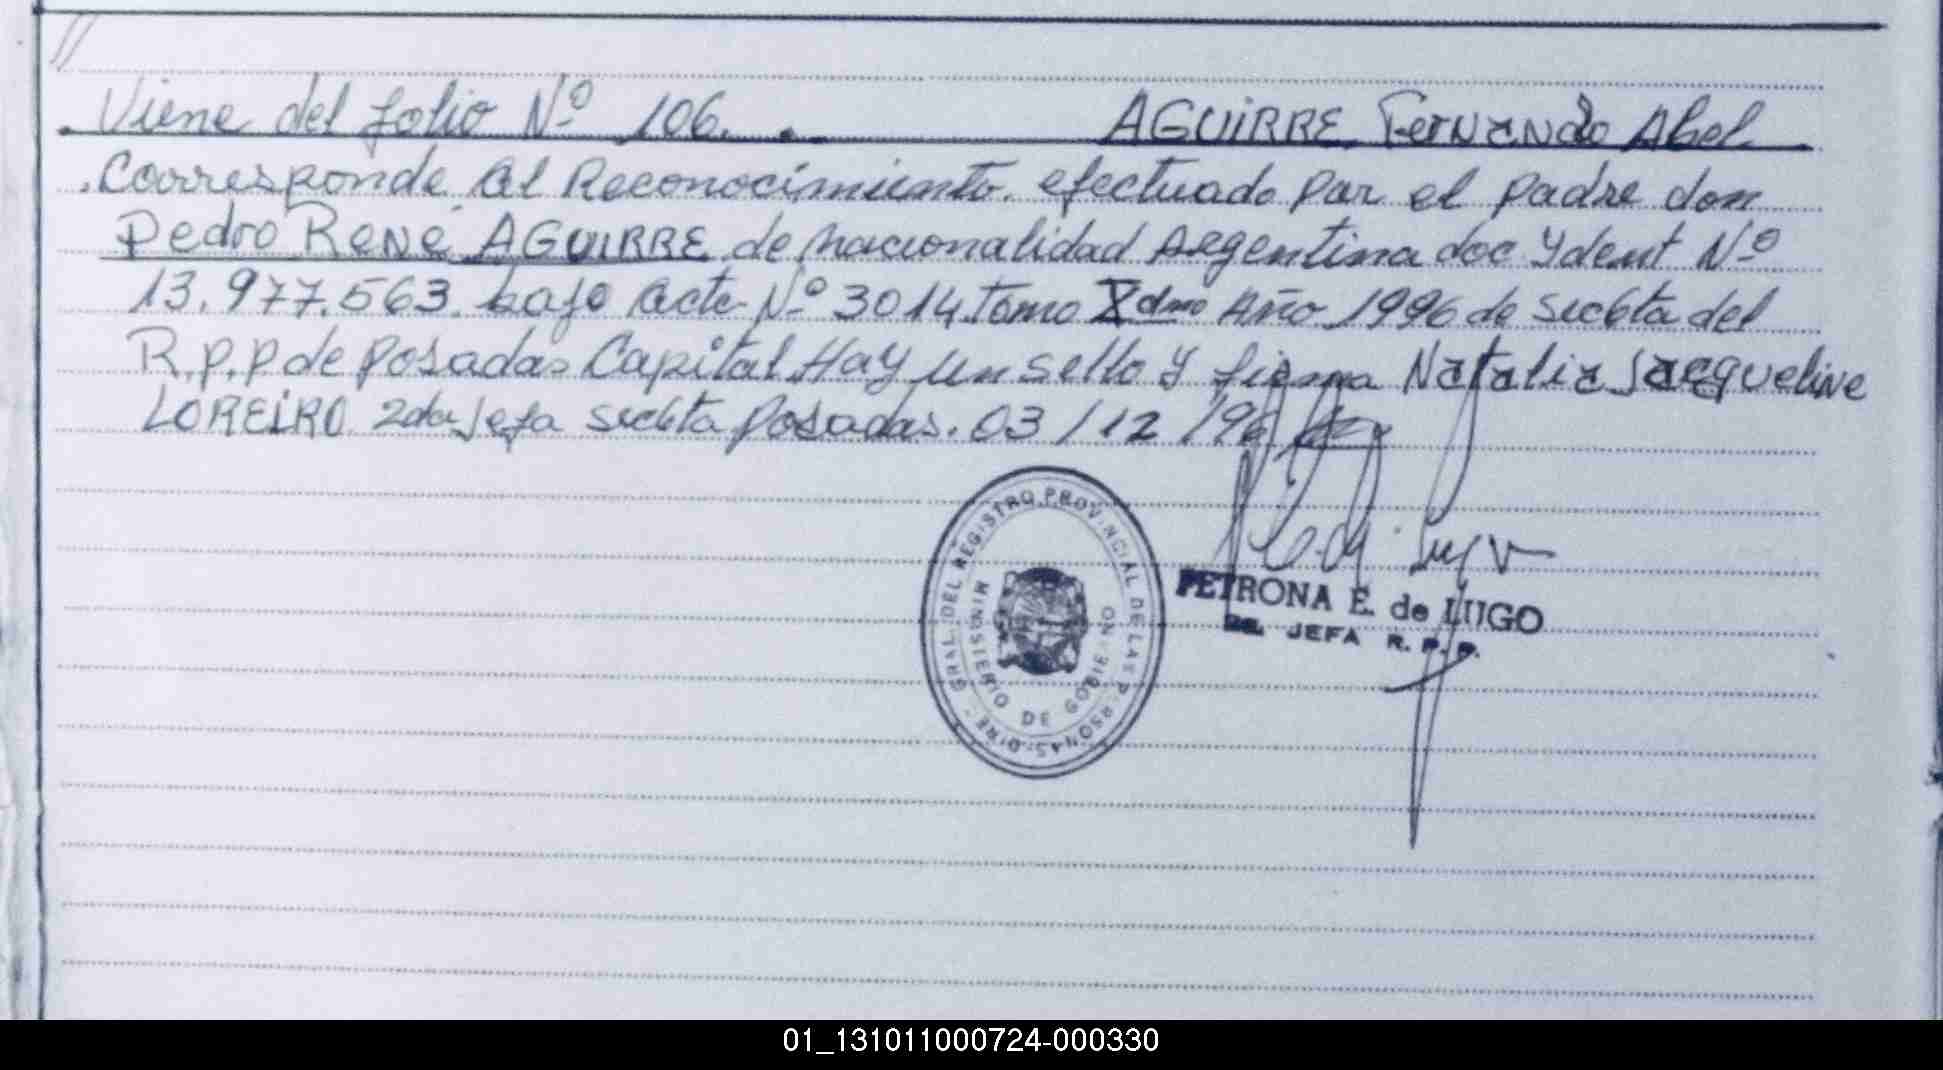 //
Viene del folio Nº 106. AGUIRRE Fernando Abel
Corresponde al Reconocimiento. efectuado Por el padre don
Pedro René AGUIRRE de nacionalidad Argentina doc Ydent Nº
13.977.563. bajo acta Nº 3014 Tomo Xdmo Año 1996 de Secc6ta del
R.P.P de Posadas Capital Hay un sello y firma Natalia Jacqueline
LOREIRO 2da Jefa Secc6ta Posadas. 03/12/96
GRAL. DEL REGISTRO PROVINCIAL DE LAS PERSONAS-DIRE
MINISTERIO DE GOBIERNO
PETRONA E. de LUGO
JEFA R. P. P.
01_131011000724-000330